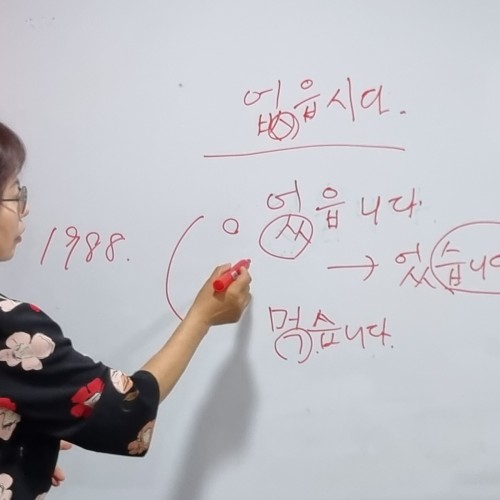 없읍시다.
었읍니다.
1988.
→ 었습니다
먹습니다.